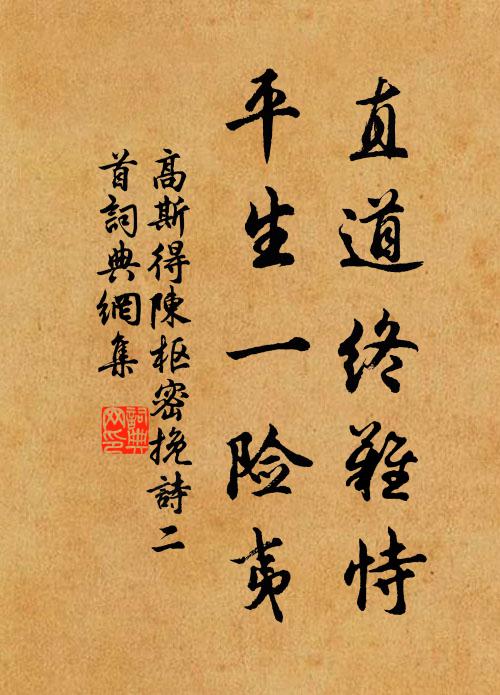 直道终难恃
平生一险夷
高斯得陳枢密挽詩二
首詞典網集
詞典
网印